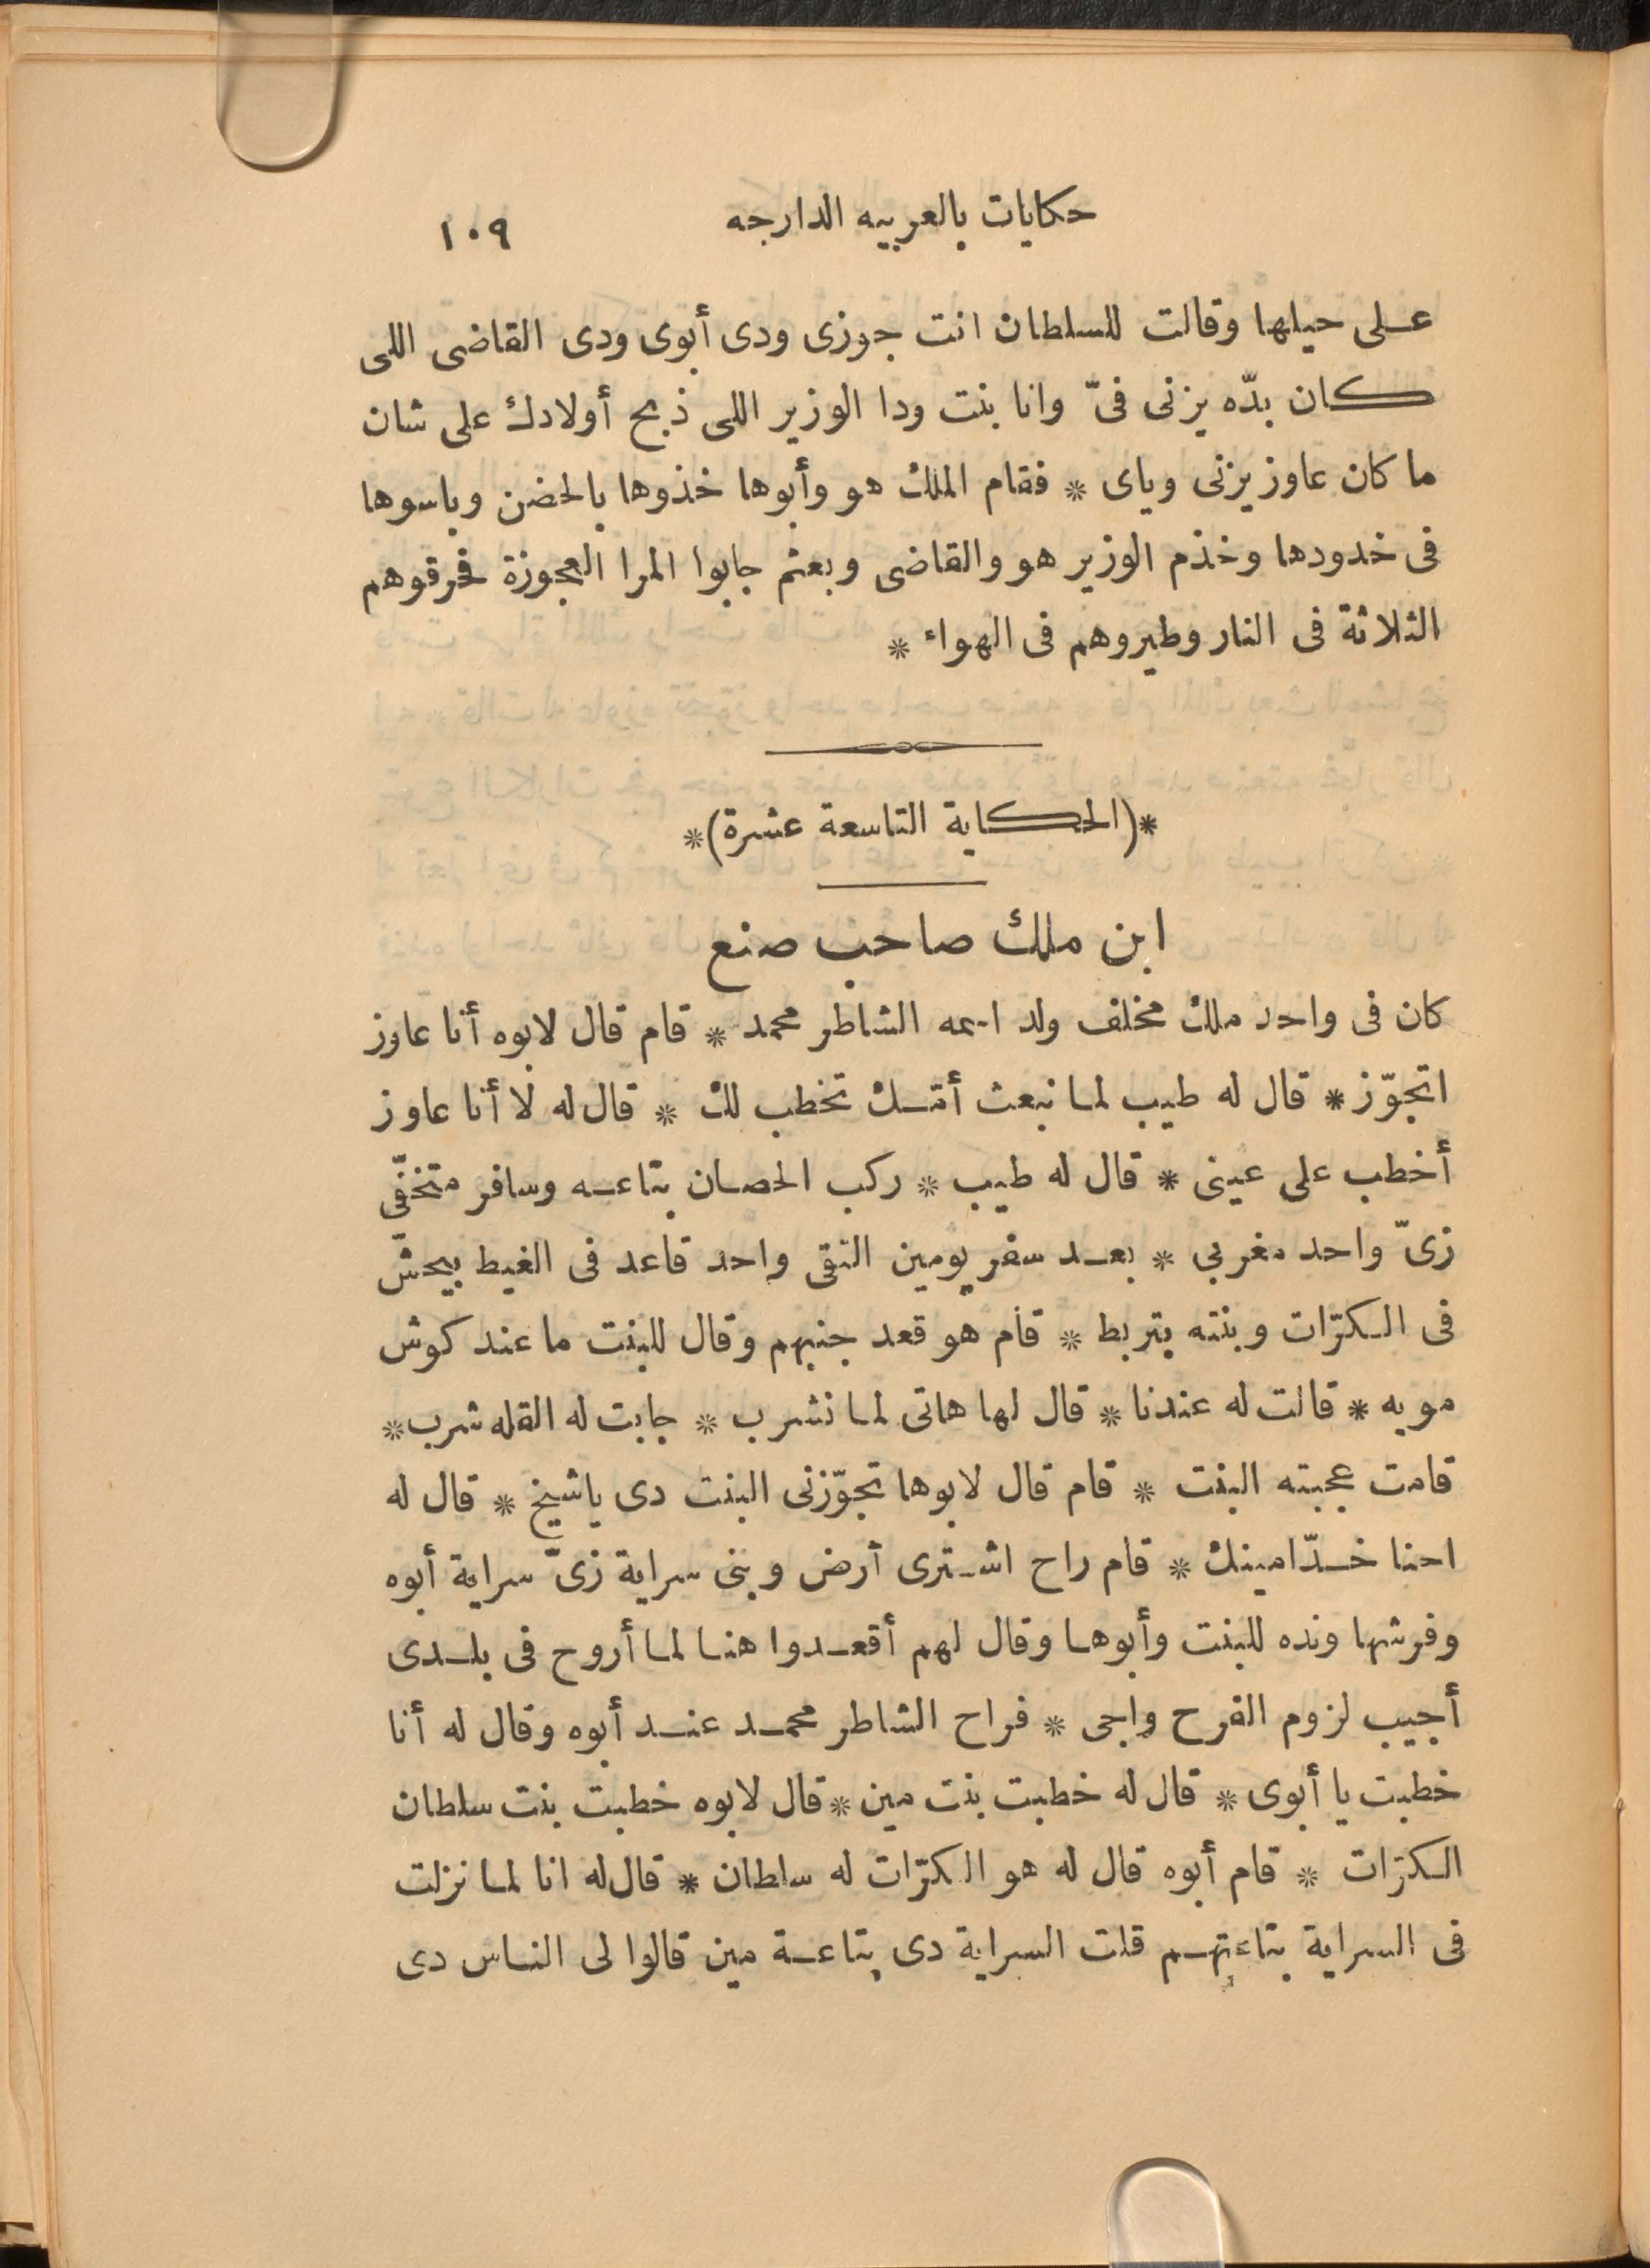 حكايات بالعربيه الدارجه ١٠٩
على حيلها وقالت للسلطان انت جوزى ودى أبوى ودى القاضى اللى
كان بدّه يزنى فىّ وانا بنت ودا الوزير اللى ذبح أولادك على شان
ما كان عاوز يزنى وياى * فقام الملك هو وأبوها خذوها بالحضن وباسوها
فى خدودها وخذم الوزير هو والقاضى وبعثم جابوا المرا العجوزة فحرقوهم
الثلاثة فى النار وطيروهم فى الهواء *
*(الحكاية التاسعة عشرة)*
ابن ملك صاحب صنع
كان فى واحد ملك مخلف ولد اسمه الشاطر محمد * قام قال لابوه أنا عاوز
اتجوّز * قال له طيب لما نبعث أمّك تخطب لك * قال له لا أنا عاوز
أخطب على عينى * قال له طيب * ركب الحصان بتاعه وسافر متخفّى
زىّ واحد مغربى * بعد سفر يومين التقى واحد قاعد فى الغيط بيحشّ
فى الكرّات وبنته بتربط * قام هو قعد جنبهم وقال للبنت ما عندكوش
مويه * قالت له عندنا * قال لها هاتى لما نشرب * جابت له القله شرب *
قامت عجبته البنت * قام قال لابوها تجوّزنى البنت دى ياشيخ * قال له
احنا خدّامينك * قام راح اشترى أرض وبنى سراية زىّ سراية أبوه
وفرشها ونده للبنت وأبوها وقال لهم أقعدوا هنا لما أروح فى بلدى
أجيب لزوم الفرح واجى * فراح الشاطر محمد عند أبوه وقال له أنا
خطبت يا أبوى * قال له خطبت بنت مين * قال لابوه خطبت بنت سلطان
الكرّات * قام أبوه قال له هو الكرّات له سلطان * قال له انا لما نزلت
فى السراية بتاعتهم قلت السراية دى بتاعة مين قالوا لى الناس دى